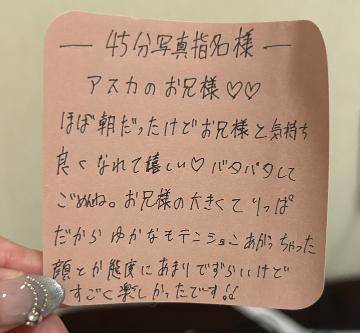 ― 45分写真指名様 ―
アスカのお兄様♡♡
ほぼ朝だったけどお兄様と気持ち
良くなれて嬉しい♡ バタバタして
ごめんね。お兄様の大きくてりっぱ
だから ゆかなもテンションあがっちゃった
顔とか態度にあまりでずらいけど
すごく楽しかったです!!